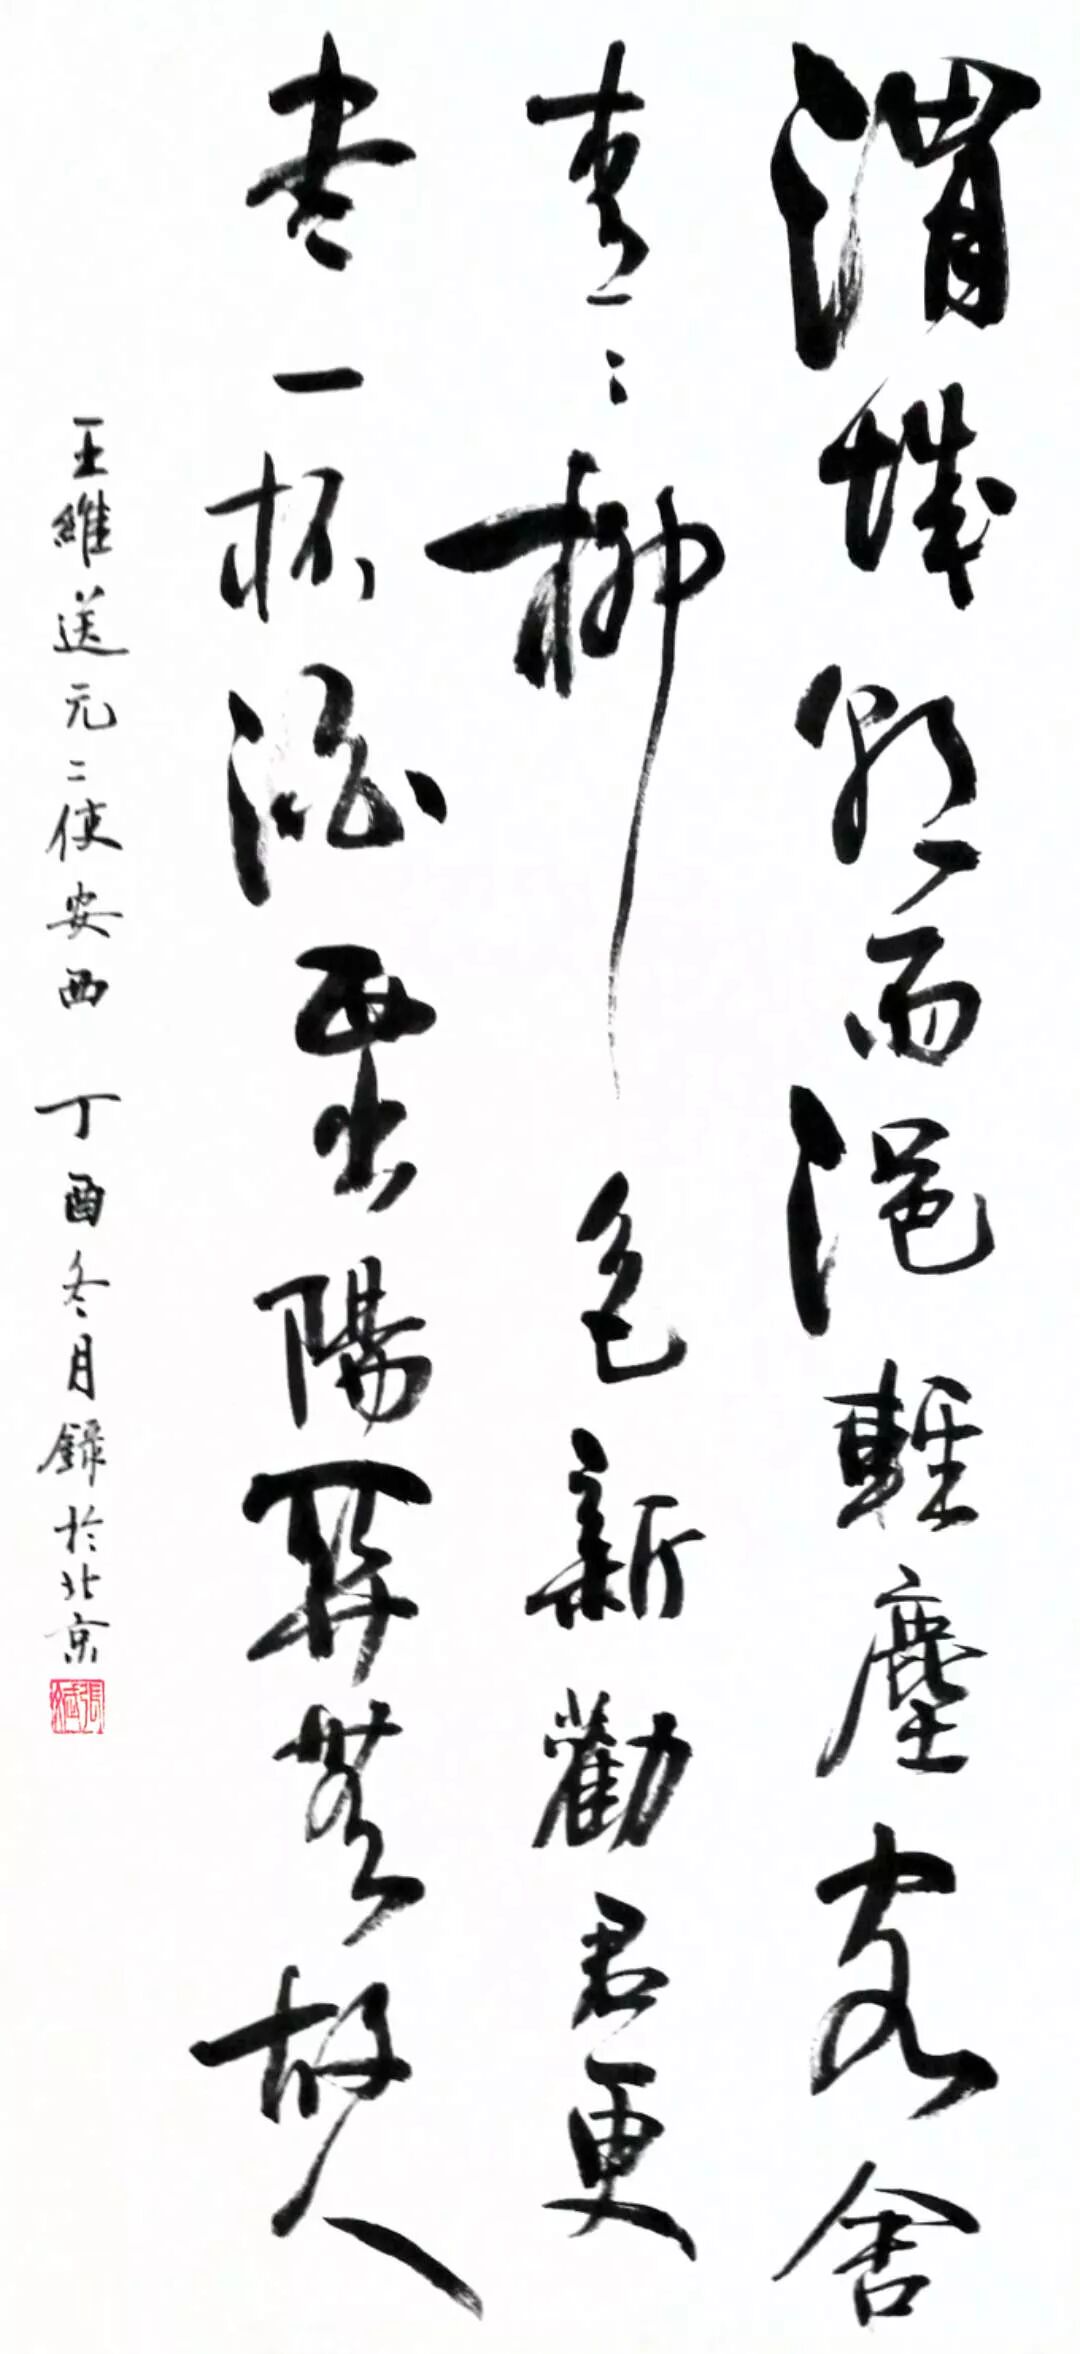 渭城朝雨浥輕塵客舍
青〻柳色新勸君更
盡一杯酒西出陽關無故人
王維送元二使安西 丁酉冬月錄於北京